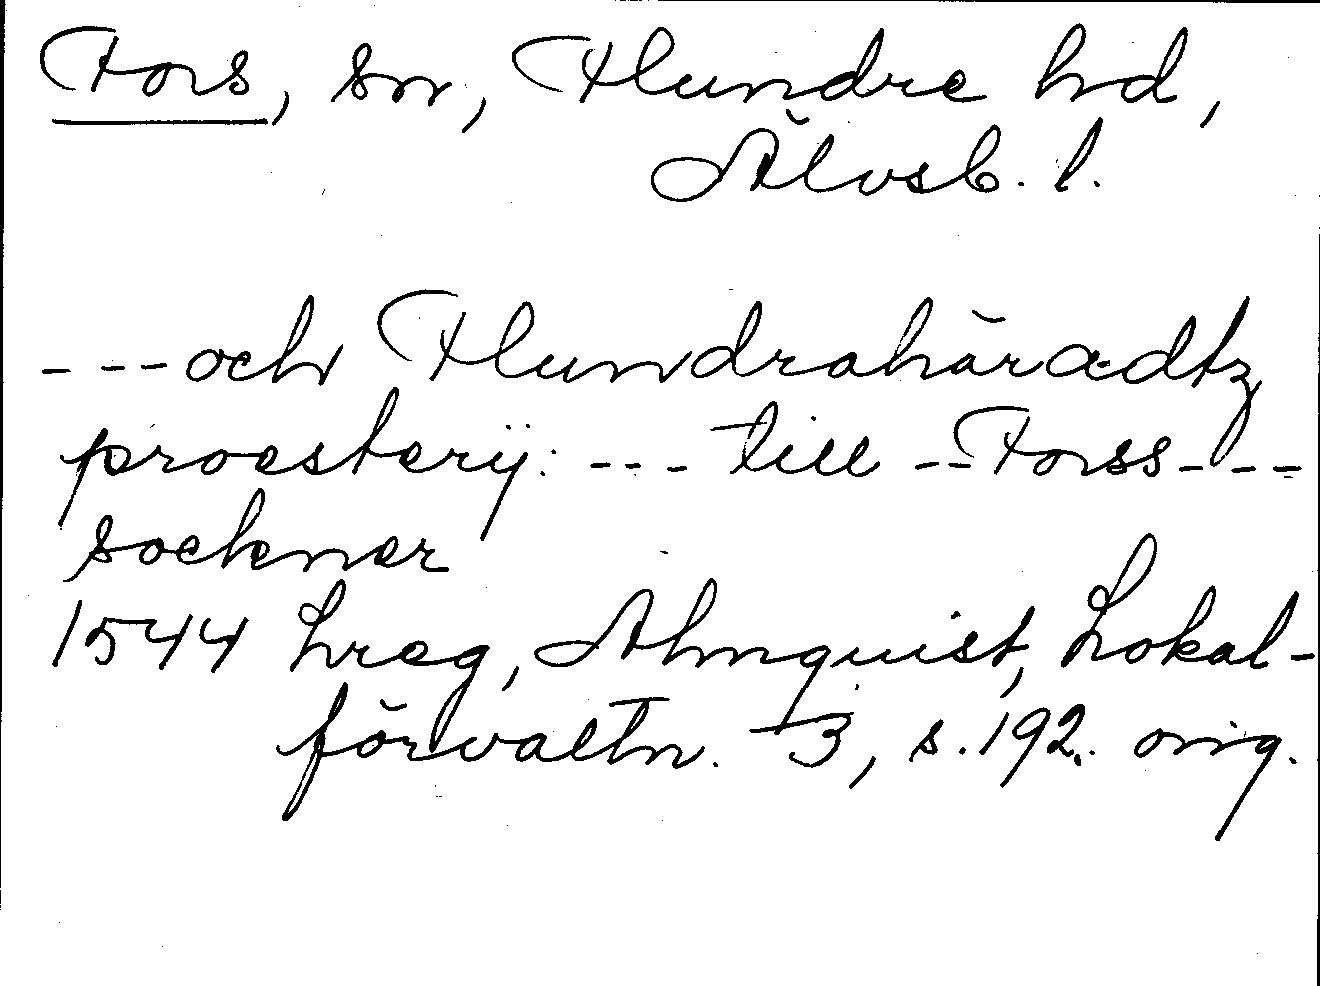 Fors, sn, Flundre hd,
Älvsb. l.
---och Flundrahäradtz
proesterij: --- till --Forss---
sockner
1544 Lreg, Almquist, Lokal-
förvaltn. 3, s. 192. orig.